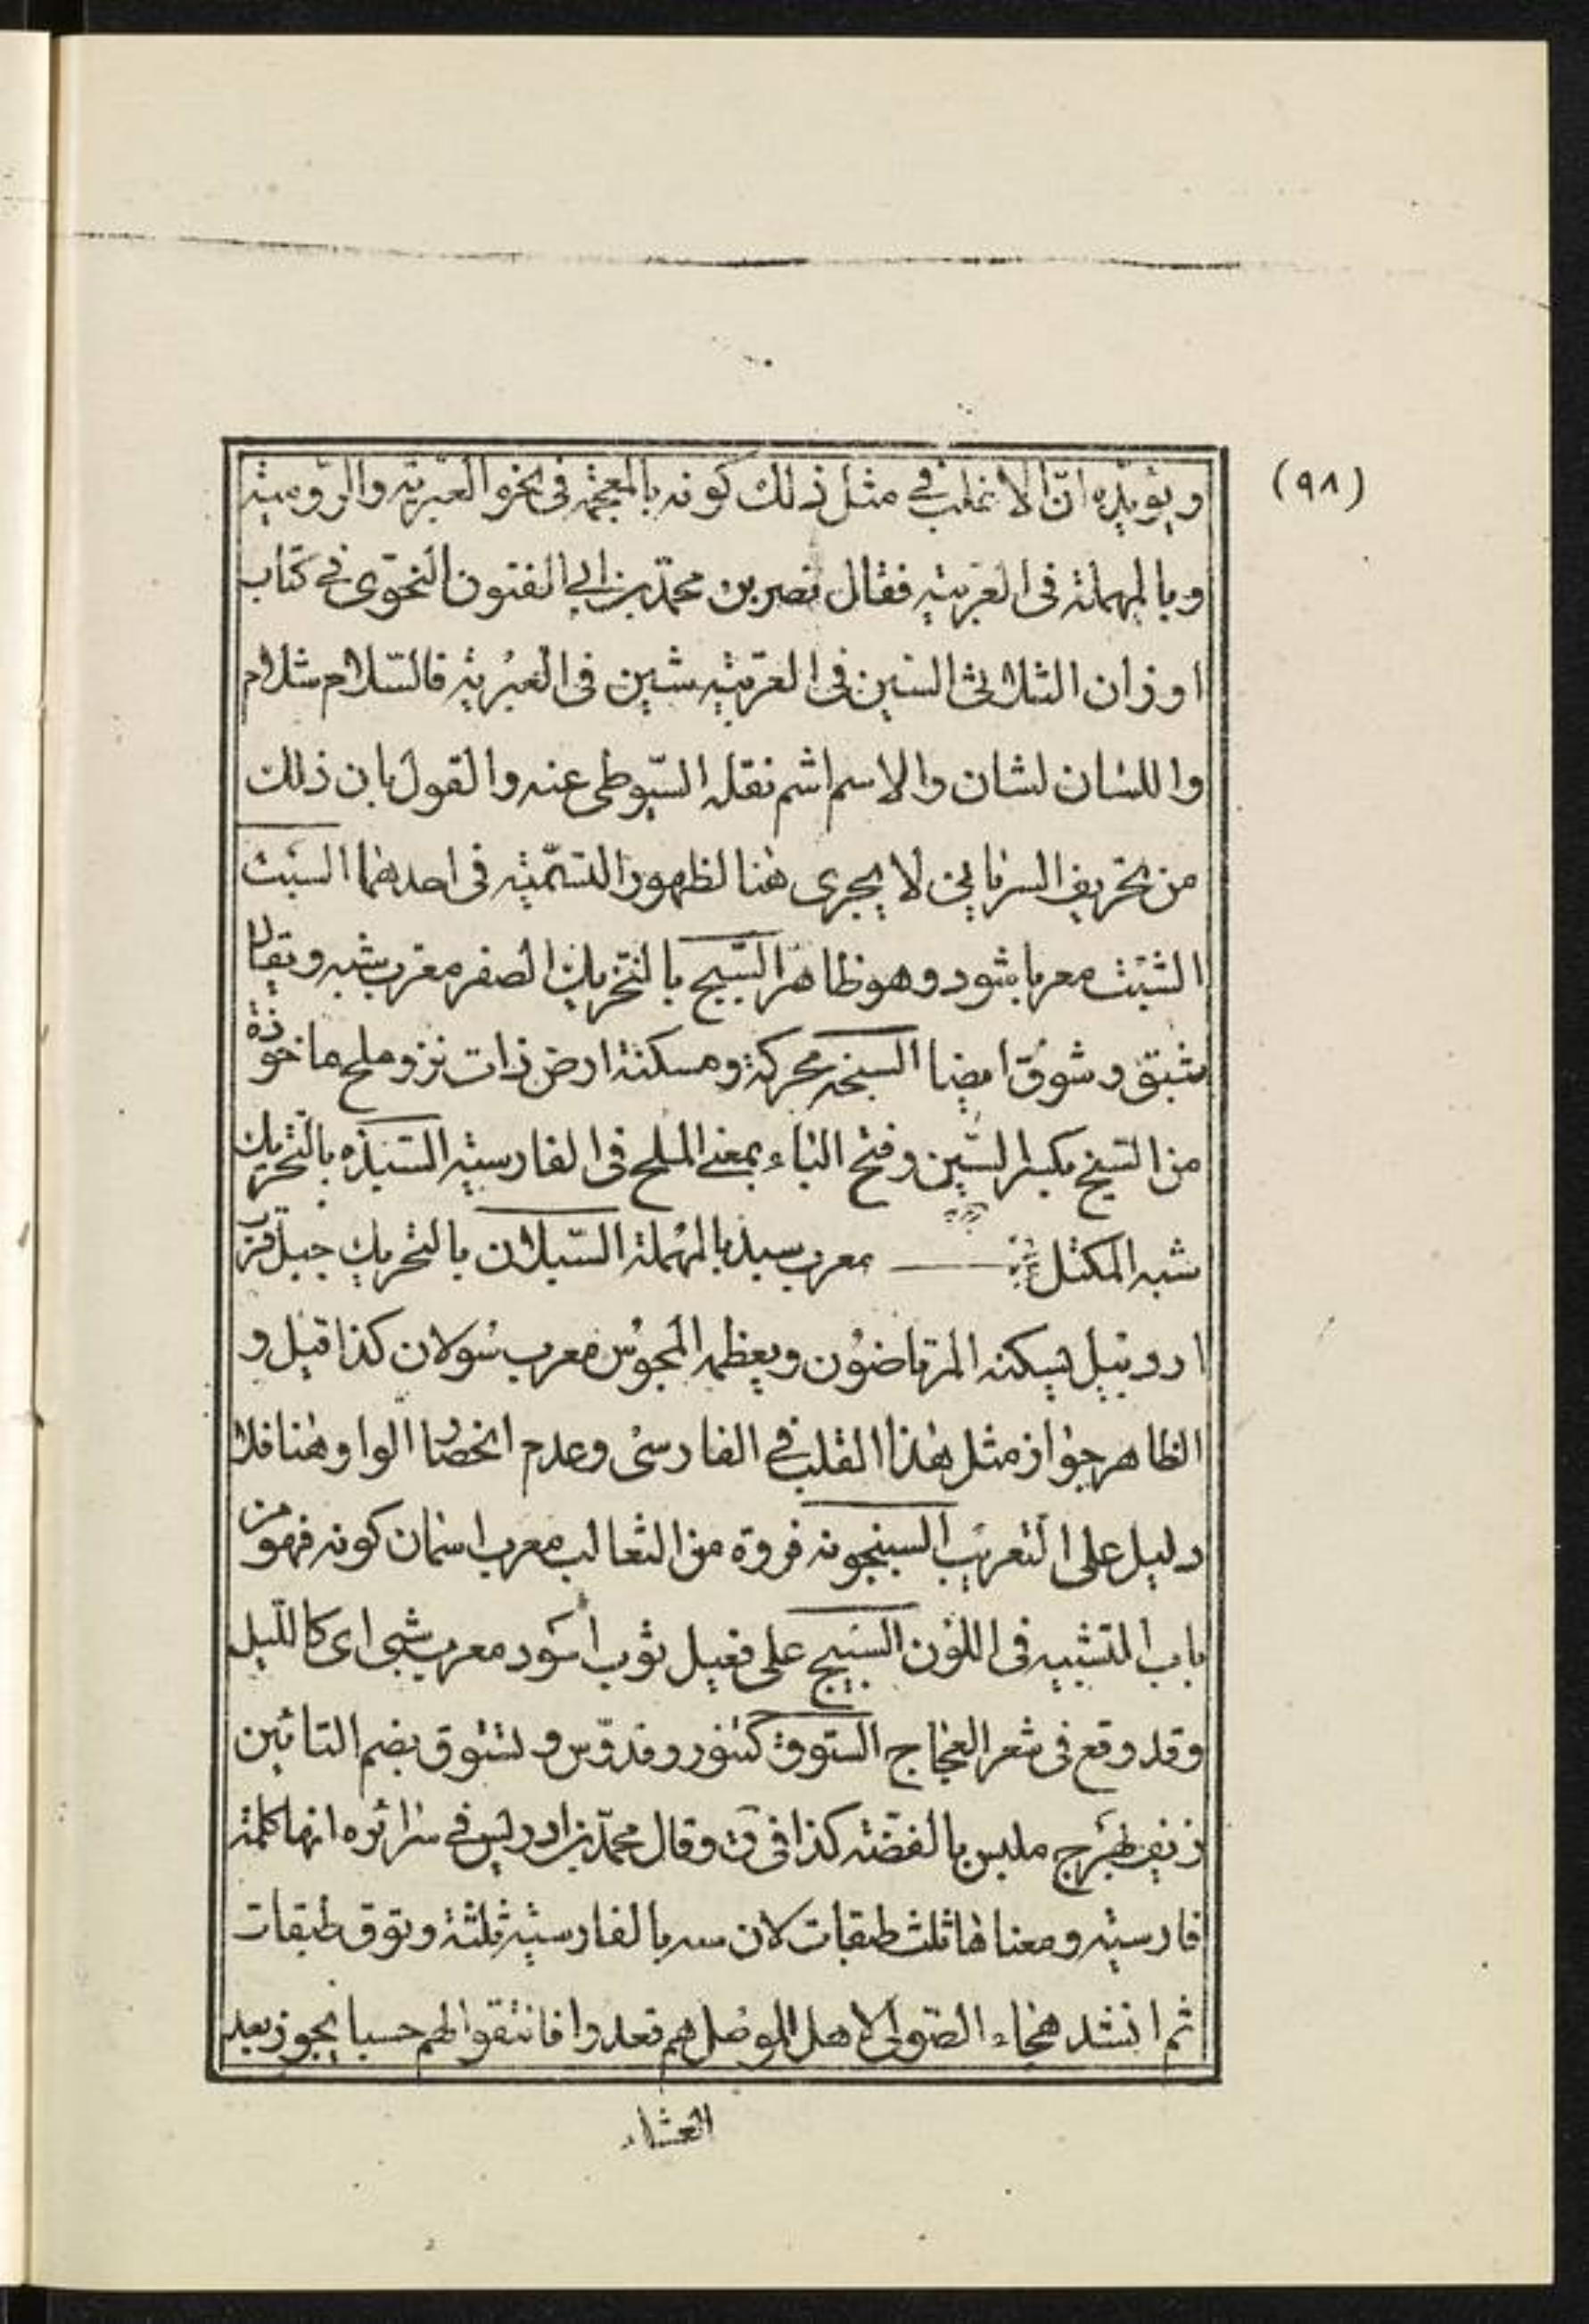 (٩٨)
ويؤيده انّ الاغلب في مثل ذلك كونه بالمعجمة فى نحو العبريّة والرّومية
وبالمهملة فى العربية فقال نصر بن محمّد بن ابي الفنون النحوى في كتاب
اوزان الثلاثى السين فى العربية شين فى العبرية فالسّلام شلام
واللسان لشان والاسم اشم نقله السّيوطى عنه والقول بان ذلك
من تحريف السريانين لا يجرى هنا لظهور التسمية فى احدهما السبت
الشبث معربا شود وهو ظاهر السّبج بالتحريك الصفر معرب شبه ويقال
شبق وشوق ايضا السبخه محركة ومسكنة ارض ذات نز وملح ماخوذة
من السّبخ بكسر السّين وفتح الباء بمعنى الملح فى الفارسيّة السّبذه بالتحريك
شبه المكتل معرب سبد بالمهملة السّبلان بالتحريك جبل قرب
اردبيل يسكنه المرتاضون ويعظمه المجوس معرب سولان كذا قيل و
الظاهر جواز مثل هذا القلب في الفارسى وعدم انحصار الواو هنا فلا
دليل على التعريب السبنجونه فروة من الثعالب معرب اسمان كونه فهو من
باب التشبيه فى اللون السبيج على فعيل ثوب اسود معرب شبى اى كالليل
وقد وقع فى شعر العجاج الستوق كتنور وقدّوس وتستوق بضم التائين
زيف بهرج ملبس بالفضّة كذا فى ق وقال محمّد بن ادريس في سرائره انها كلمة
فارسيّة ومعناها ثلث طبقات لان سه بالفارسيّة ثلثة وتوق طبقات
ثم انشد هجاء الصولى لاهل الموصل هم قعدوا فانتقوا لهم حسبا يجوز بعد
العشاء